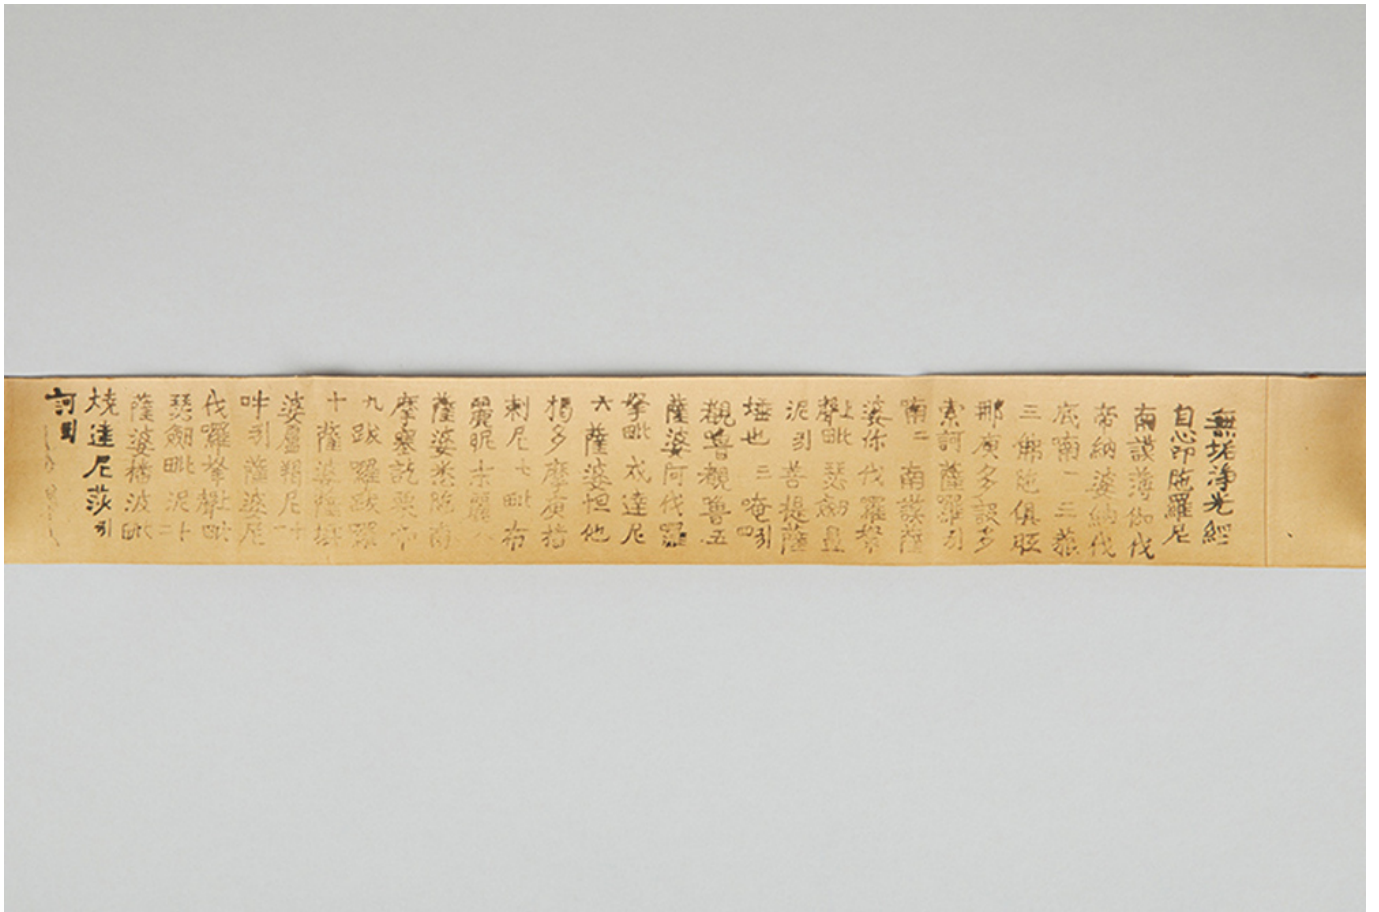 無垢淨光經
自心印陁羅尼
南謨薄伽伐
帝納婆納伐
底喃一三藐
三佛陁俱胝
那庾多設多
索訶薩羅引
喃二 南謨薩
婆你伐羅拏
上聲毗瑟劒
泥引菩提薩
埵也三唵四引
覩嚕覩嚕五
薩婆阿伐羅
拏毗戍達尼
六薩婆怛他
揭多摩庾播
剌尼七毗布
麗昵末麗
薩婆悉陁南
摩塞訖栗帝
九跋羅跋羅
十薩婆薩埵
婆盧羯尼十
吽引薩婆尼
伐囉拏上聲毗
瑟劒毗泥十二
薩婆播波毗
燒達尼莎引
訶引